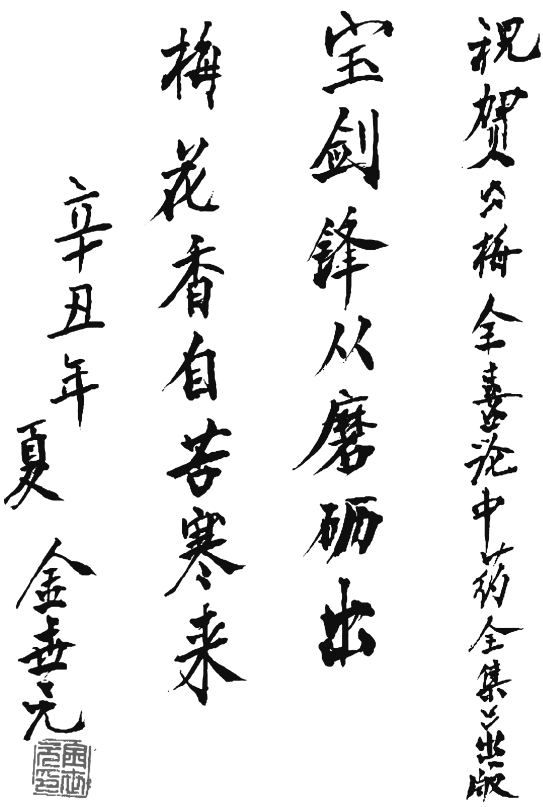 祝贺《梅全喜论中药全集》出版
宝剑锋从磨砺出
梅花香自苦寒来
辛丑年
夏 金世元
金世元印